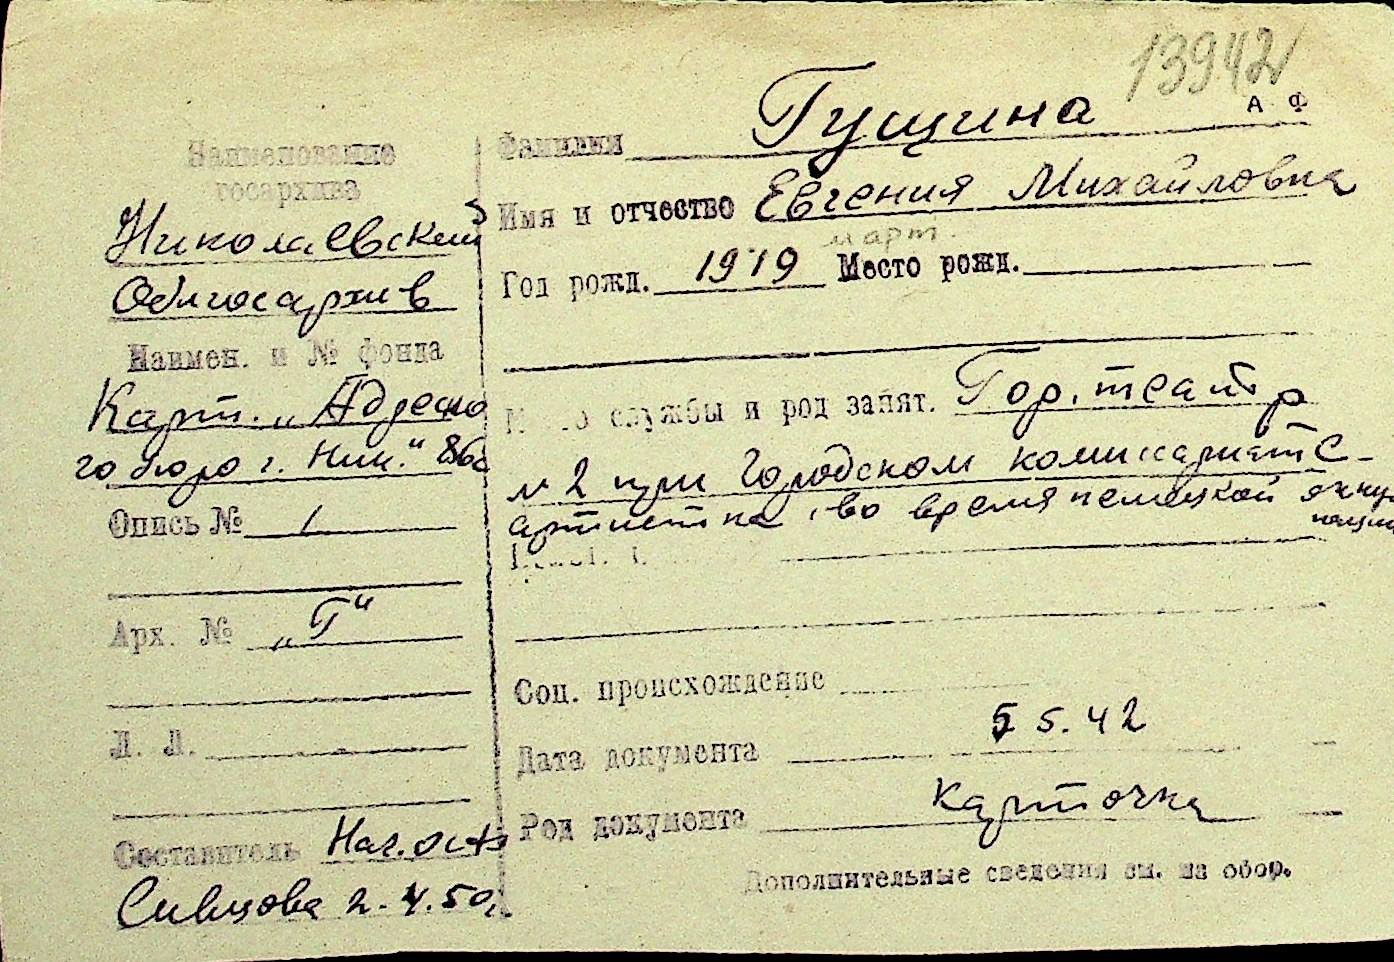 13942
А Ф
Наименование
госархива
Николаевский
Облгосархив
Наимен. и № фонда
Карт. „Адресно
го бюро г. Ник."
Опись № 1
Арх. № „Г"
Л. Л.
Составитель Нач.
Сивцова 2.4.50г.
Фамилия Гущина
Имя и отчество Евгения Михайловна
март.
Год рожд. 1919 Место рожд.
службы и род занят. Гор.театр
№ 2 при Городском комиссариате-
артистка, во время немецкой окку
пации
Соц. происхождение
Дата документа 5 5.42
Род документа карточка
Дополнительные сведения см. на обор.